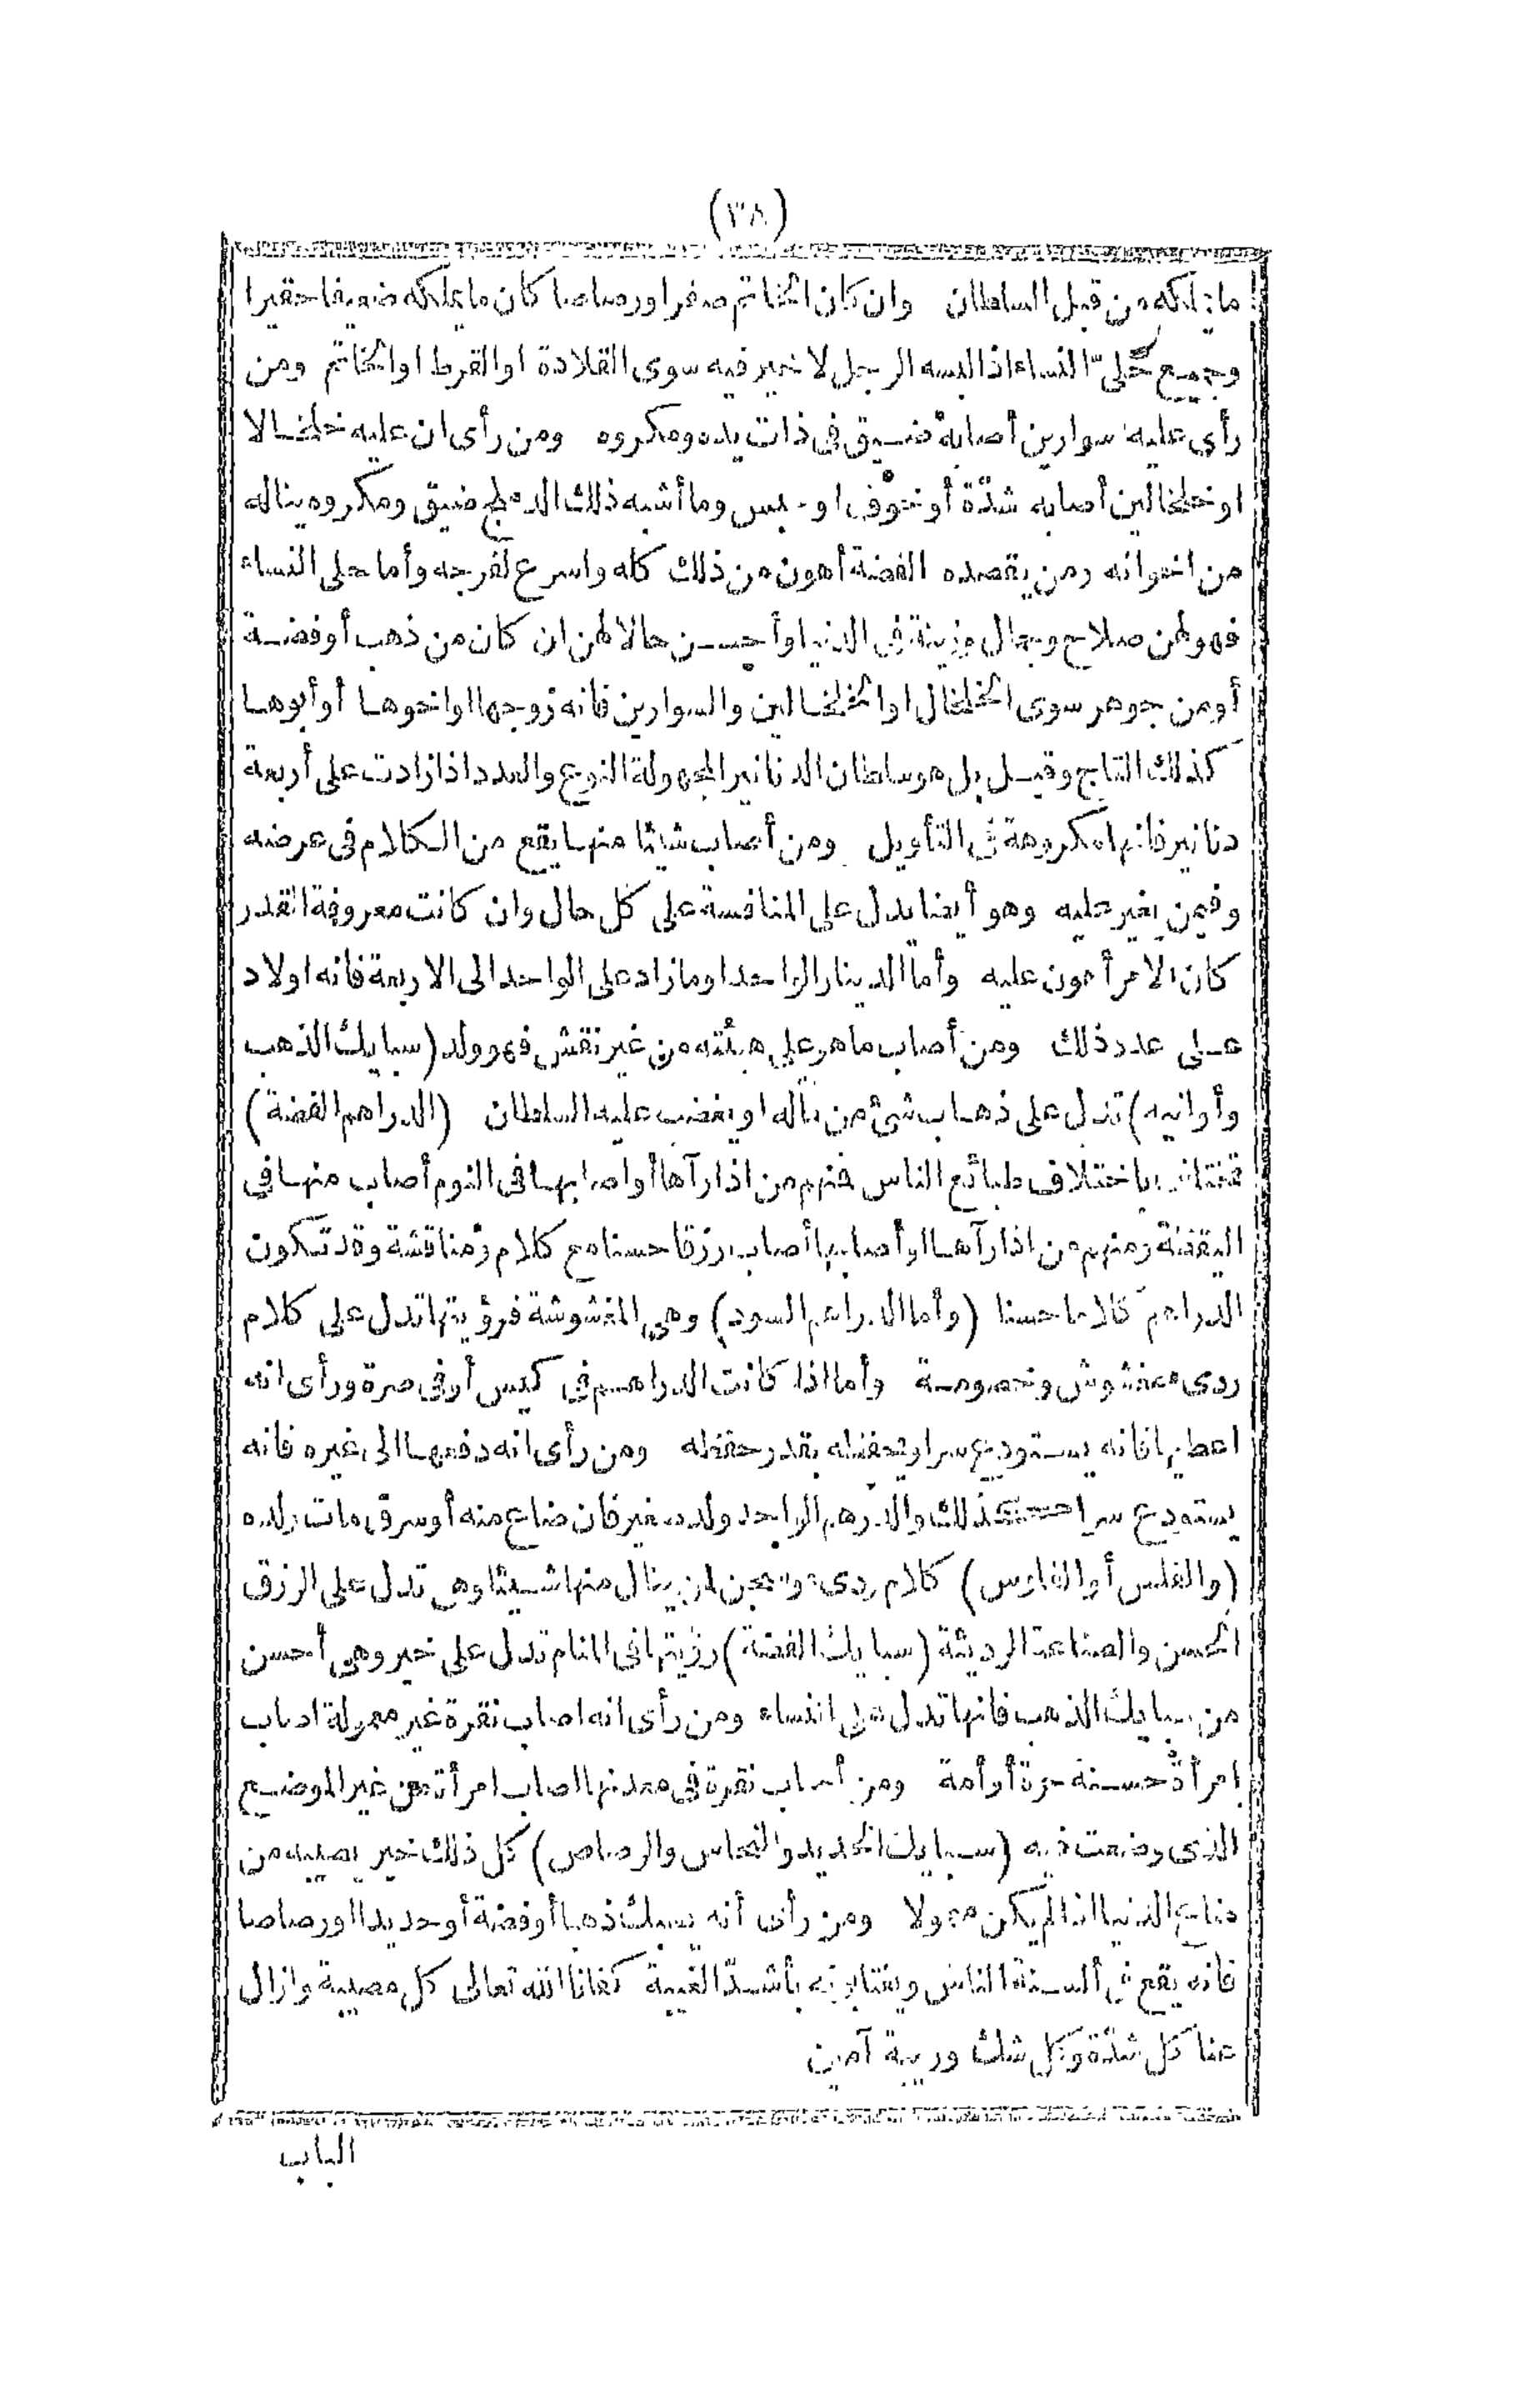 (٣٨)
ما يملكه من قبل السلطان وان كان الخاتم صفرا او رصاصا كان ما يملكه ضعيفا حقيرا
وجميع حُلىّ النساء اذا لبسه الرجل لا خير فيه سوى القلادة او القرط او الخاتم ومن
رأى عليه سوارين أصابه ضيق فى ذات يده ومكروه ومن رأى ان عليه خلخالا
او خلخالين أصابه شدّة أو خوف او حبس وما أشبه ذلك الدملج ضيق ومكروه يناله
من اخوانه ومن يقصده الفضة أهون من ذلك كله واسرع لفرجه وأما حلى النساء
فهو لهن صلاح وجمال وزينة فى الدنيا وأحسن حالا لهن ان كان من ذهب أو فضة
أو من جوهر سوى الخلخال او الخلخالين والسوارين فانه زوجها او اخوها أو أبوها
كذلك التاج وقيل بل هو سلطان الدنانير المجهولة النوع والعدد اذا زادت على أربعة
دنانير فانها مكروهة فى التأويل ومن أصاب شيئا منها يقع من الكلام فى عرضه
وفيمن يغير عليه وهو أيضا يدل على المنافسة على كل حال وان كانت معروفة القدر
كان الامر أهون عليه وأما الدينار الواحد او ما زاد على الواحد الى الاربعة فانه اولاد
على عدد ذلك ومن أصاب ما هو على هيئته من غير نقش فهو ولد (سبايك الذهب
وأوانيه) تدل على ذهاب شئ من ماله او يغضب عليه السلطان (الدراهم الفضة)
تختلف باختلاف طبائع الناس فمنهم من اذا رآها أو اصابها فى النوم أصاب منها فى
اليقظة ومنهم من اذا رآها او أصابها أصاب رزقا حسنا مع كلام ومناقشة وقد تكون
الدراهم كلاما حسنا (وأما الدراهم السود) وهى المغشوشة فرؤيتها تدل على كلام
ردى مغشوش وخصومة وأما اذا كانت الدراهم فى كيس أو فى صرة ورأى انه
اعطيها فانه يستودع سرا ويحفظه بقدر حفظه ومن رأى انه دفعها الى غيره فانه
يستودع سرا كذلك والدرهم الواحد ولد صغير فان ضاع منه أو سرق مات ولده
(والفلس أو الفلوس) كلام ردى وسجن لمن ينال منها شيئا وهى تدل على الرزق
الحسن والصناعة الرديئة (سبايك الفضة) رؤيتها فى المنام تدل على خير وهى أحسن
من سبايك الذهب فانها تدل على النساء ومن رأى انه اصاب نقرة غير معمولة اصاب
امرأة حسنة حرة أو أمة ومن أصاب نقرة فى معدنها اصاب امرأة من غير الموضع
الذى وضعت فيه (سبايك الحديد والنحاس والرصاص) كل ذلك خير يصيبه من
متاع الدنيا اذا لم يكن معمولا ومن رأى أنه يسبك ذهبا أو فضة أو حديدا او رصاصا
فانه يقع فى ألسنة الناس ويغتابونه بأشدّ الغيبة كفانا الله تعالى كل مصيبة وازال
عنا كل شدّة وكل شك وريبة آمين
الباب